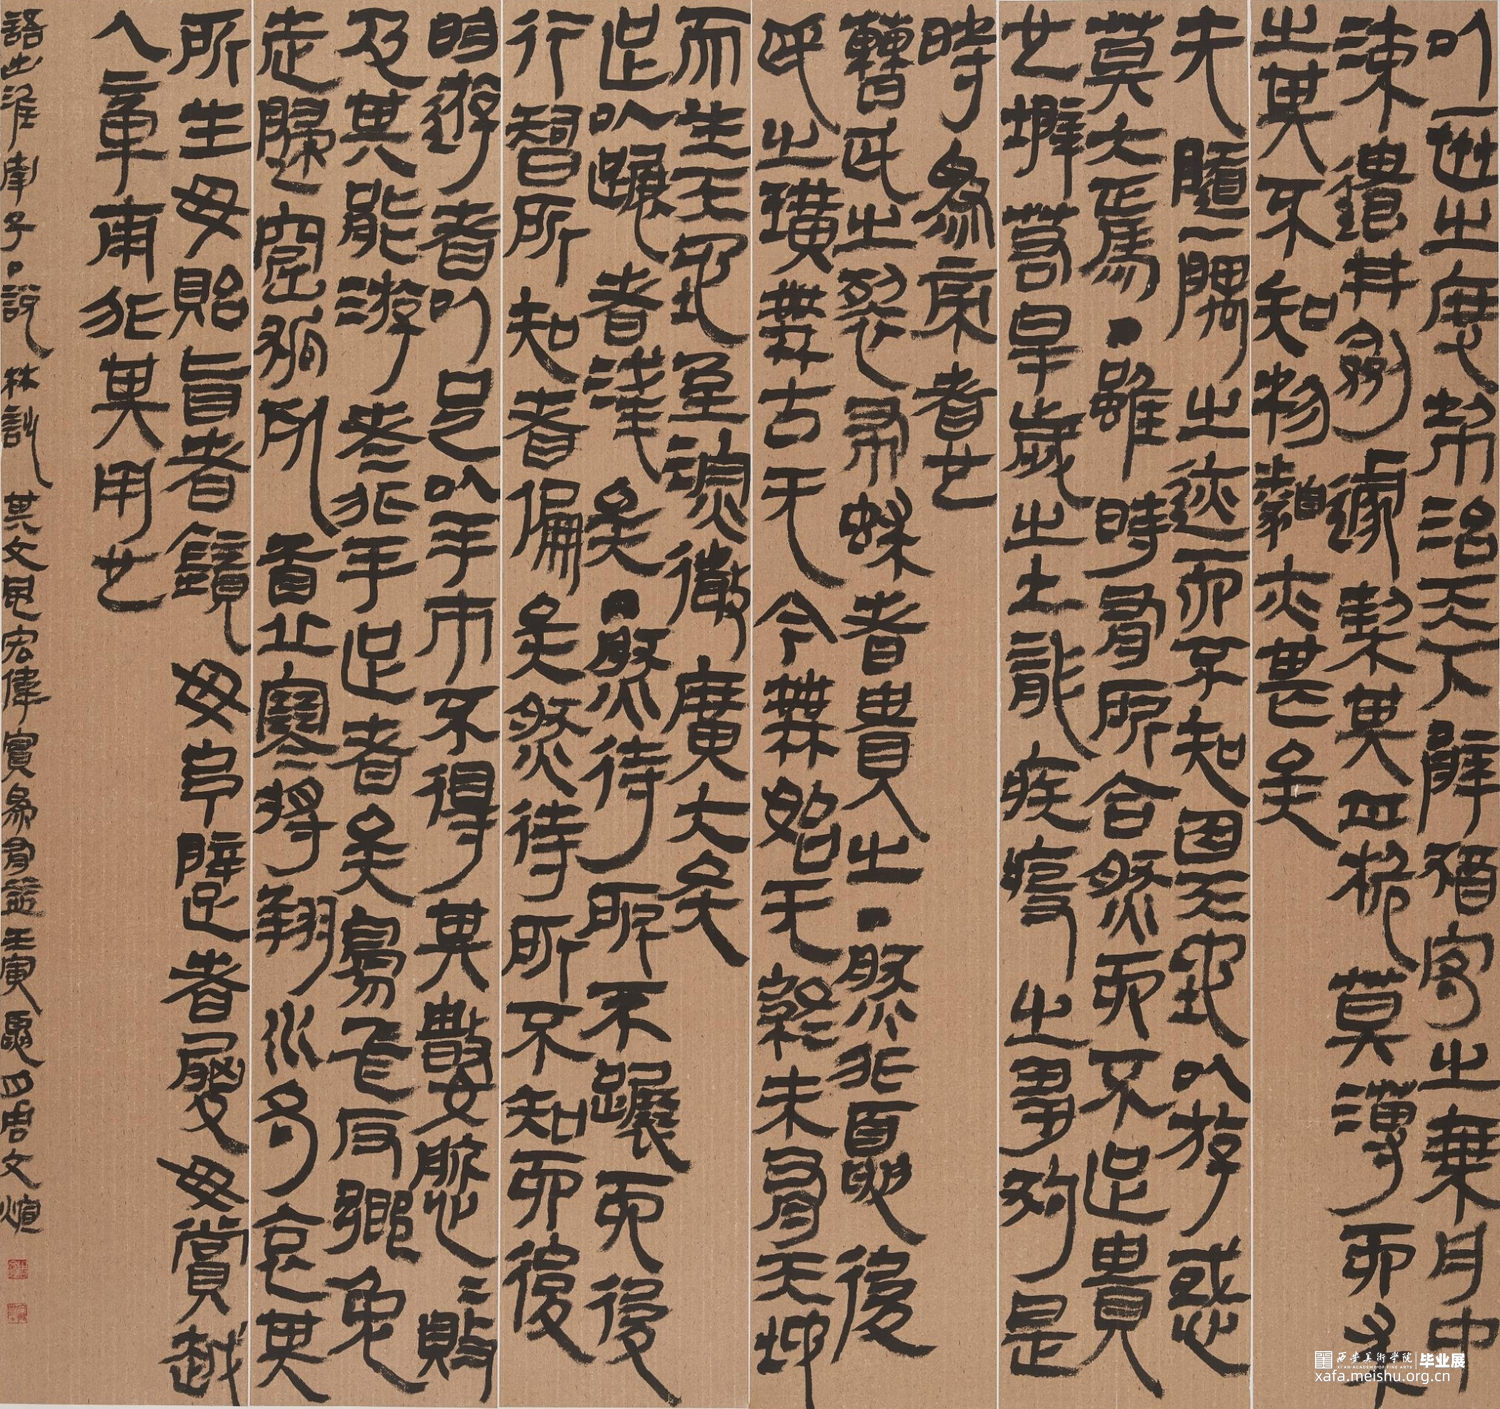 以一世之度制治天下辟猶客之乘舟中
流遺其劍遽契其舟桅莫薄而求
之其不知物類亦甚矣
夫隨一隅之迹而不知因天地以游惑
莫大焉雖時有所合然而不足貴
也辟若旱歲之土龍疾疫之芻狗是
時為帝者也
曹氏之裂布蛷者貴之然非夏後
氏之璜無古无今無始无終未有天地
而生天地至深微廣大矣
足以蹍者淺矣然待所不蹍而後
行智所知者褊矣然待所不知而後
明游者以足以手市不得其數愈敗
及其能游者非手足者矣鳥飛反鄉兔
走歸窟狐死首丘寒將翔水各哀其
所生毋貽盲者鏡毋予躄者履毋賞越
人章甫非其用也
語出淮南子說林訓其文見宏偉實為有益壬寅夏四唐文煊
西安美術學院 毕业展
XI'AN ACADEMY OF FINE ARTS
xafa.meishu.org.cn